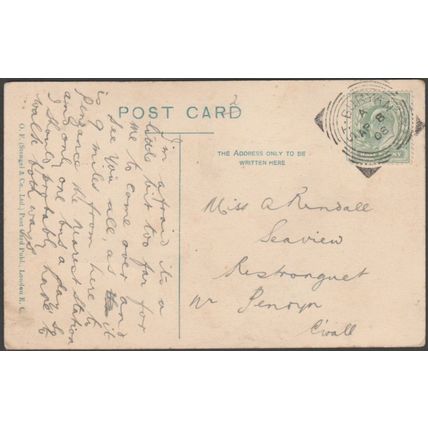 POST CARD
THE ADDRESS ONLY TO BE
WRITTEN HERE
I'm afraid its a
little bit too far for
me to come over and
see you all, as it
is 9 miles from here to
Penzance the nearest station
and only one bus a day so
I should probably have to
walk both ways
O. F. (Stengel & Co., Ltd.) Post Card Publ., London E. C.
Miss A Rendall
Seaview
Restronguet
Nr Penryn
C'wall
AP 8
08